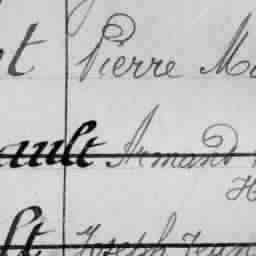 t Pierre M
ault Armand
H
lt Joseph Jean